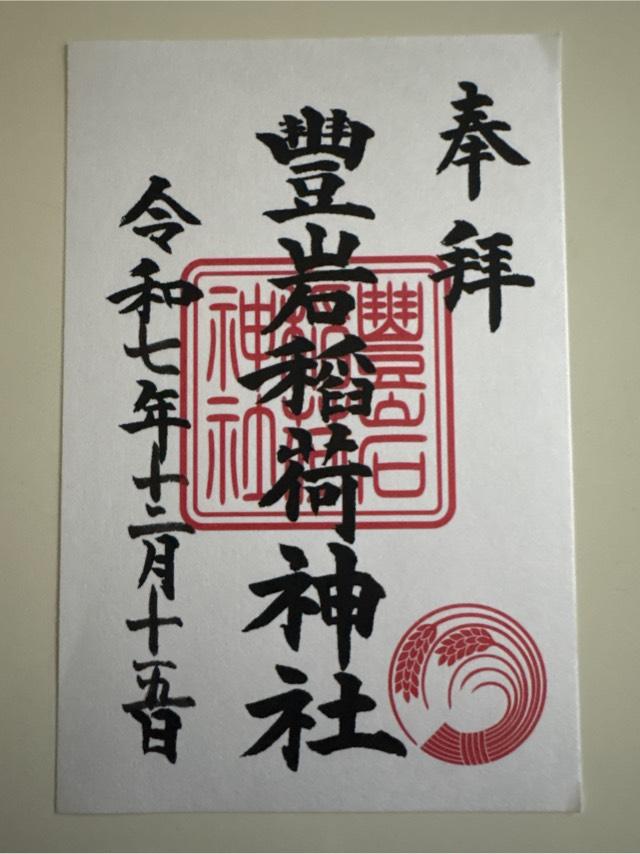 奉拜
豐岩稲荷神社
令和七年十二月十五日
豐岩稲荷神社